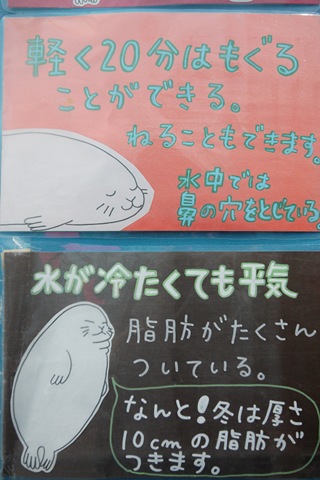 軽く20分はもぐる
ことができる。
ねることもできます。
水中では
鼻の穴をとじている。
水が冷たくても平気
脂肪がたくさん
ついている。
なんと!冬は厚さ
10cmの脂肪が
つきます。